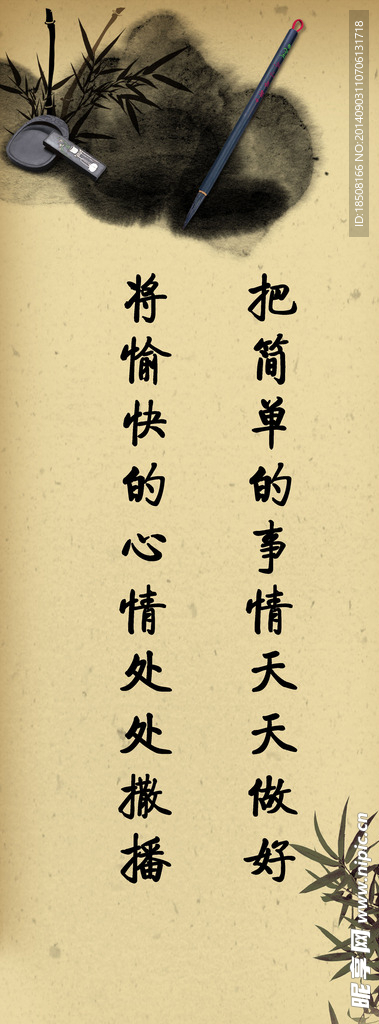 把简单的事情天天做好
将愉快的心情处处撒播
ID:18508166 NO:20140903110706131718
昵享网 www.nipic.cn